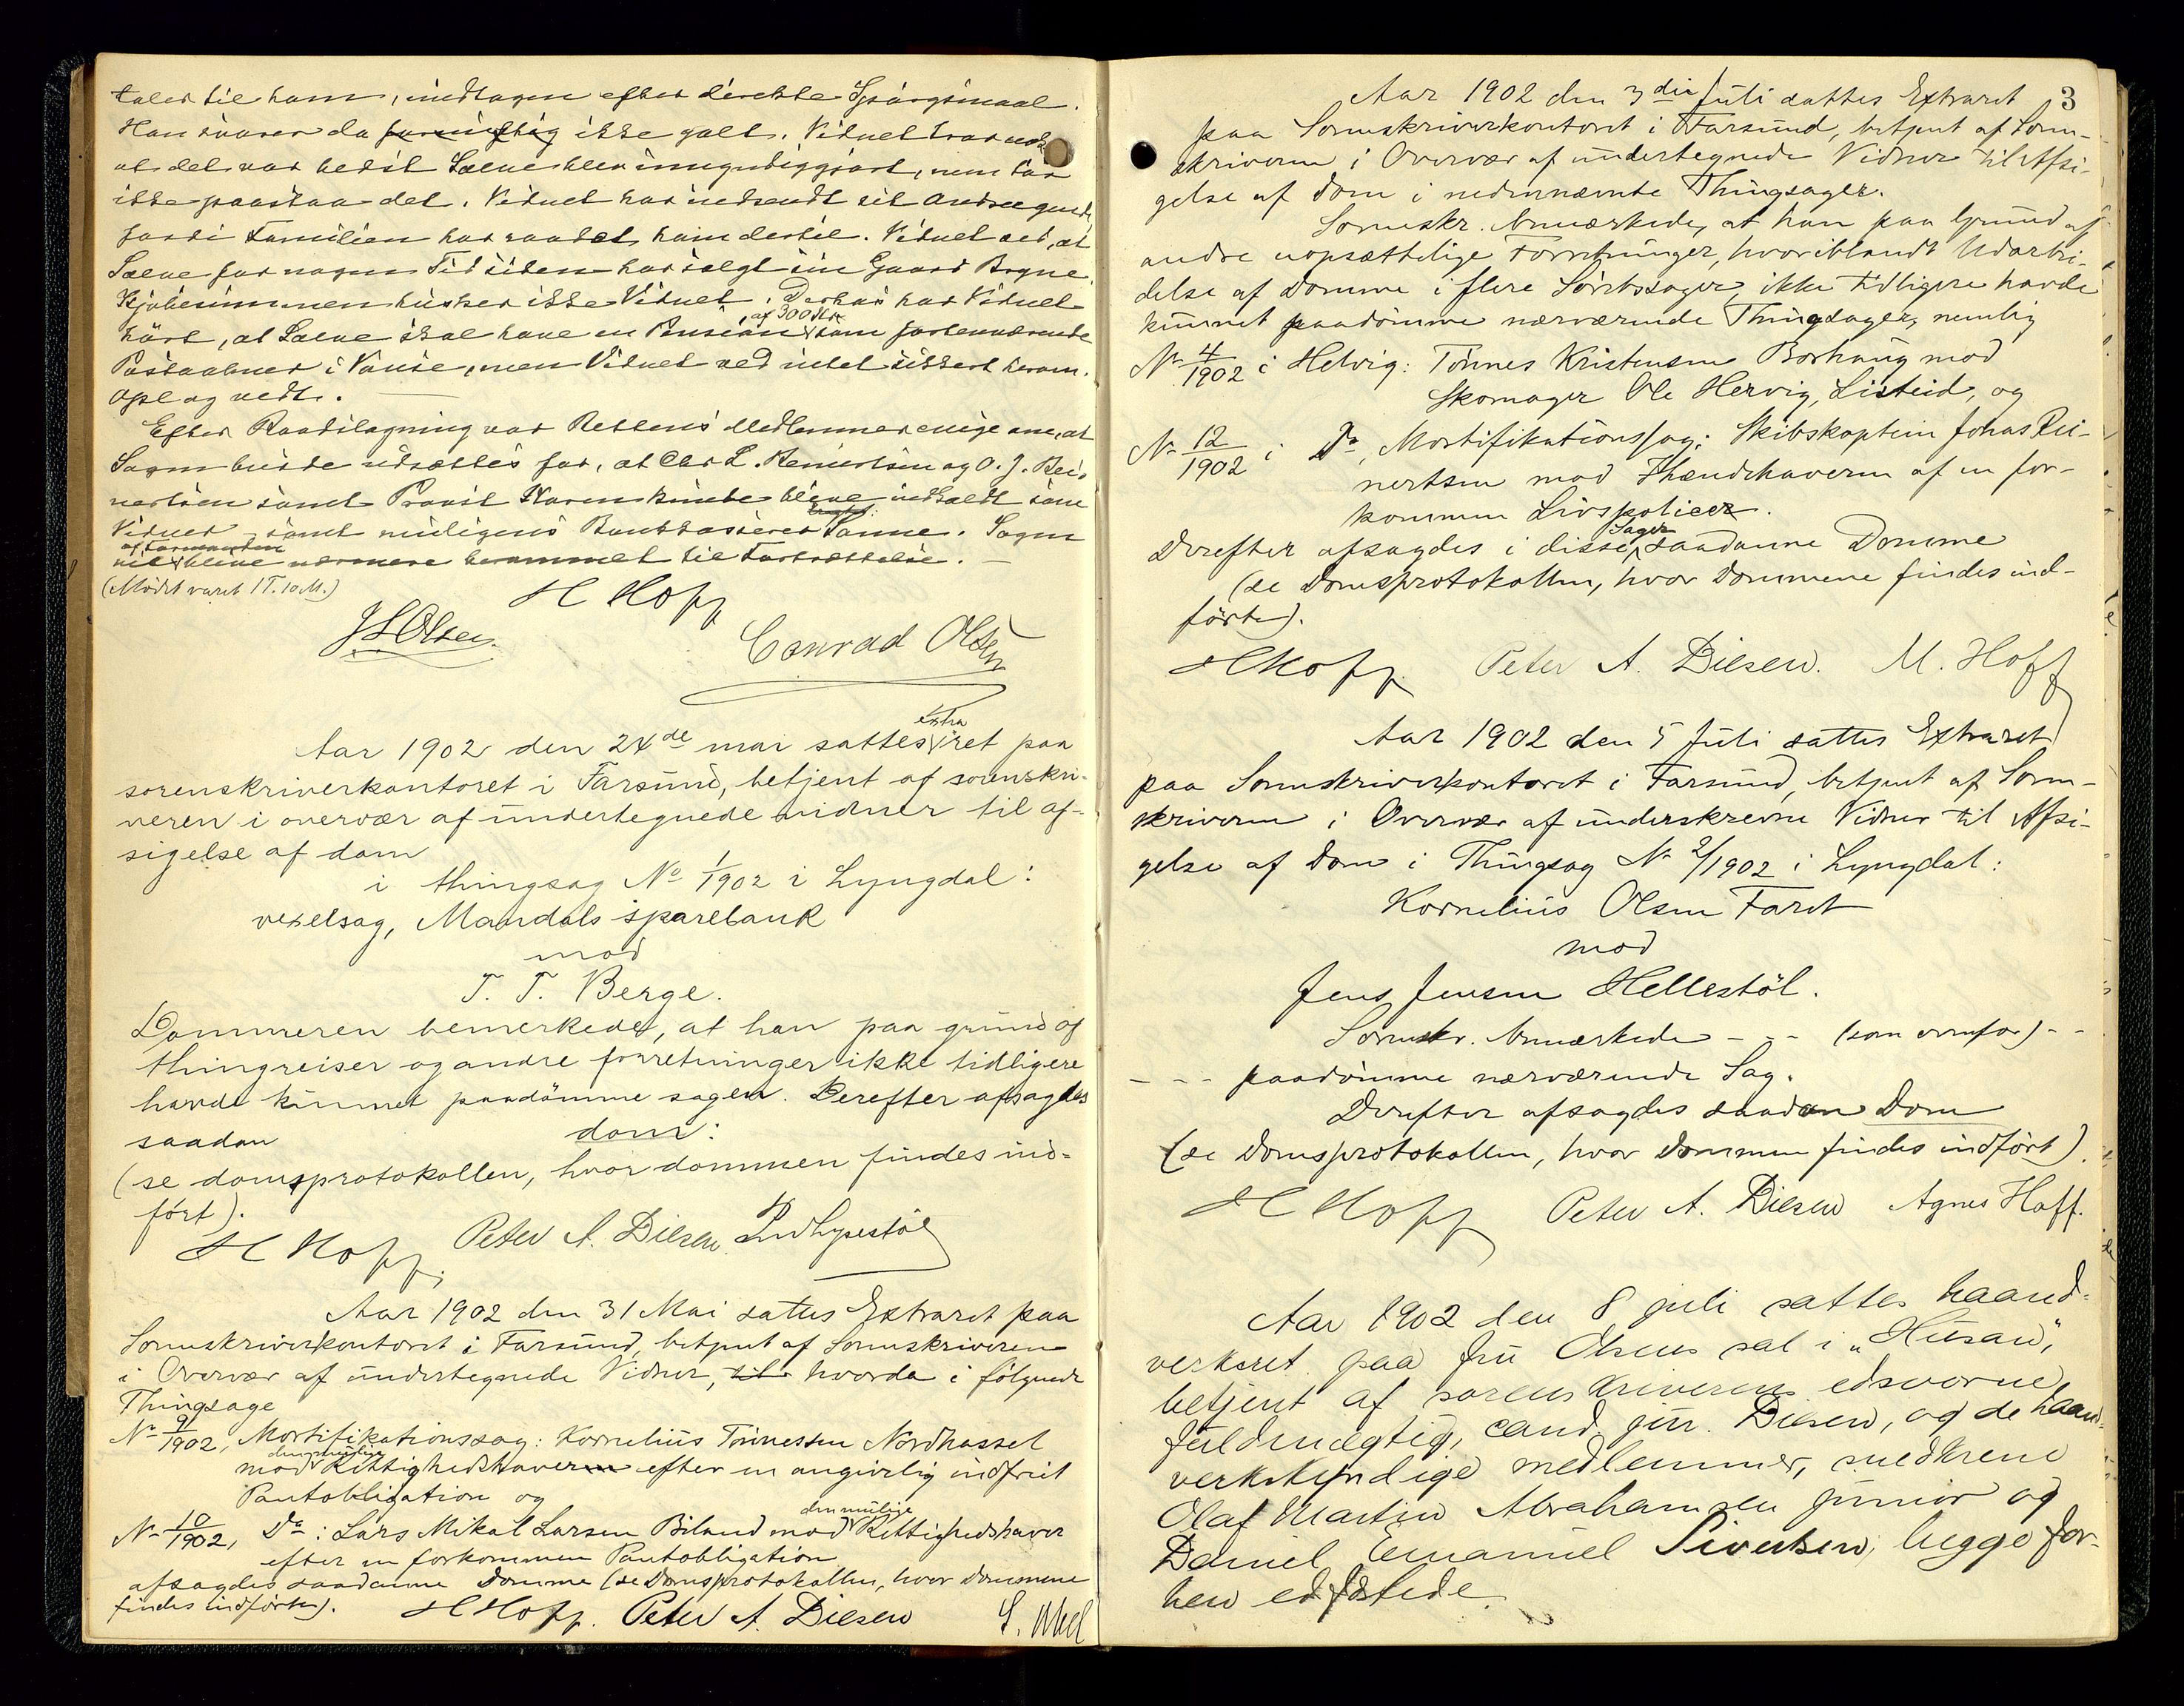 taler til ham, undtagen efter direkte Spørgsmaal.
Han svarer da fornuftig ikke galt. Vidnet tror nok
at det var bedst Salve blev umyndiggjort, men tør
ikke paastaa det. Vidnet har indsendt sit Andragende
fordi Familien har raadet ham dertil. Vidnet ved, at
Salve for nogen Tid siden har solgt sin Gaard Brgne
Kjøbesummen husker ikke Vidnet. Derhos har Vidnet
hørt, at Salve skal have en Pension af 300 som forhenværende
Postaabner i Vanse, men Vidnet ved intet sikkert herom.
Opl og vedt.
Efter Raadslagning var Rettens Medlemmer enige om, at
Sagen burde udsættes for, at Chr L. Reinertsen og O. J. Rei-
nertsen samt Provst blive indkaldt som
Vidner, samt muligens Bankkasserer Sanne. Sagen
vil af Formanden blive nærmere berammet til Fortsættelse.
(Mødet varet 1 T. 10 M.)
H Hopp
J S Olsen. Conrad Olsen
Aar 1902 den 24de mai sattes extra ret paa
sorenskriverkontoret i Farsund, betjent af sorenskri-
veren i overvær af undertegnede vidner til af-
sigelse af dom
i thingsag No 1/1902 i Lyngdal:
vexelsag, Mandals sparebank
mod
T. T. Berge.
Dommeren bemerkede, at han paa grund af
thingreiser og andre forretninger ikke tidligere
havde kunnet paadømme sagen. Derefter afsagdes
saadan dom:
(se domsprotokollen, hvor dommen findes ind-
ført).
H Hopp. Peter A. Diesen
Aar 1902 den 31 Mai sattes Extraret paa
Sorenskriverkontoret i Farsund, betjent af Sorenskriveren
i Overvær af undertegnede Vidner, til hvorda i følgende
Thingsage
No 9/1902, Mortifikationssag: Kornelius Tønnessen Nordhassel
mod den mulige Rettighedshaveren efter en angivelig indfriet
Pantobligation og
No 10/1902, Do: Lars Mikal Larsen Biland mod den mulige Rettighedshaver
efter en forkommen Pantobligation
afsagdes saadanne Domme (se Domsprotokollen, hvor Dommene
findes indførte). H Hopp. Peter A. Diesen
3
Aar 1902 den 3die Juli sattes Extraret
paa Sorenskriverkontoret i Farsund, betjent af Soren-
skriveren i Overvær af undertegnede Vidner til Afsi-
gelse af Dom i nedennævnte Thingsager.
Sorenskr. bemærkede, at han paa Grund af
andre uopsættelige Forretninger, hvoriblandt Udarbei-
delse af Domme i flere Søretssager, ikke tidligere havde
kunnet paadømme nærværende Thingsager, nemlig
No 4/1902 i Helvig: Tønnes Kristensen Borhaug mod
Skomager Ole Hervig, Listeid, og
No 12/1902 i Do, Mortifikationssag: Skibskaptein Jonas Rei-
nertsen mod Ihændehaveren af en for-
kommen Livspolice.
Derefter afsagdes i disse Sager saadanne Domme
(se Domsprotokollen, hvor Dommene findes ind-
førte).
H Hopp. Peter A. Diesen. M. Hoff
Aar 1902 den 5 Juli sattes Extraret
paa Sorenskriverkontoret i Farsund, betjent af Soren-
skriveren i Overvær af underskrevne Vidner til Afsi-
gelse af Dom i Thingsag No 2/1902 i Lyngdal:
Kornelius Olsen Faret
mod
Jens Jensen Hellestøl.
Sorenskr. bemærkede - - - (som ovenfor) - -
- - - paadømme nærværende Sag.
Derefter afsagdes saadan Dom
(se Domsprotokollen, hvor Dommen findes indført).
H Hopp Peter A. Diesen Agnes Hoff.
Aar 1902 den 8 juli sattes haand-
verksret paa fru Olsens sal i "Husan",
betjent af sorenskriverens edsvorne
fuldmægtig, cand. jur. Diesen, og de haand-
verkskyndige medlemmer, smedene
Olaf Martin Abrahamsen junior og
Daniel Emanuel Sivertsen, begge for-
hen edfæstede.